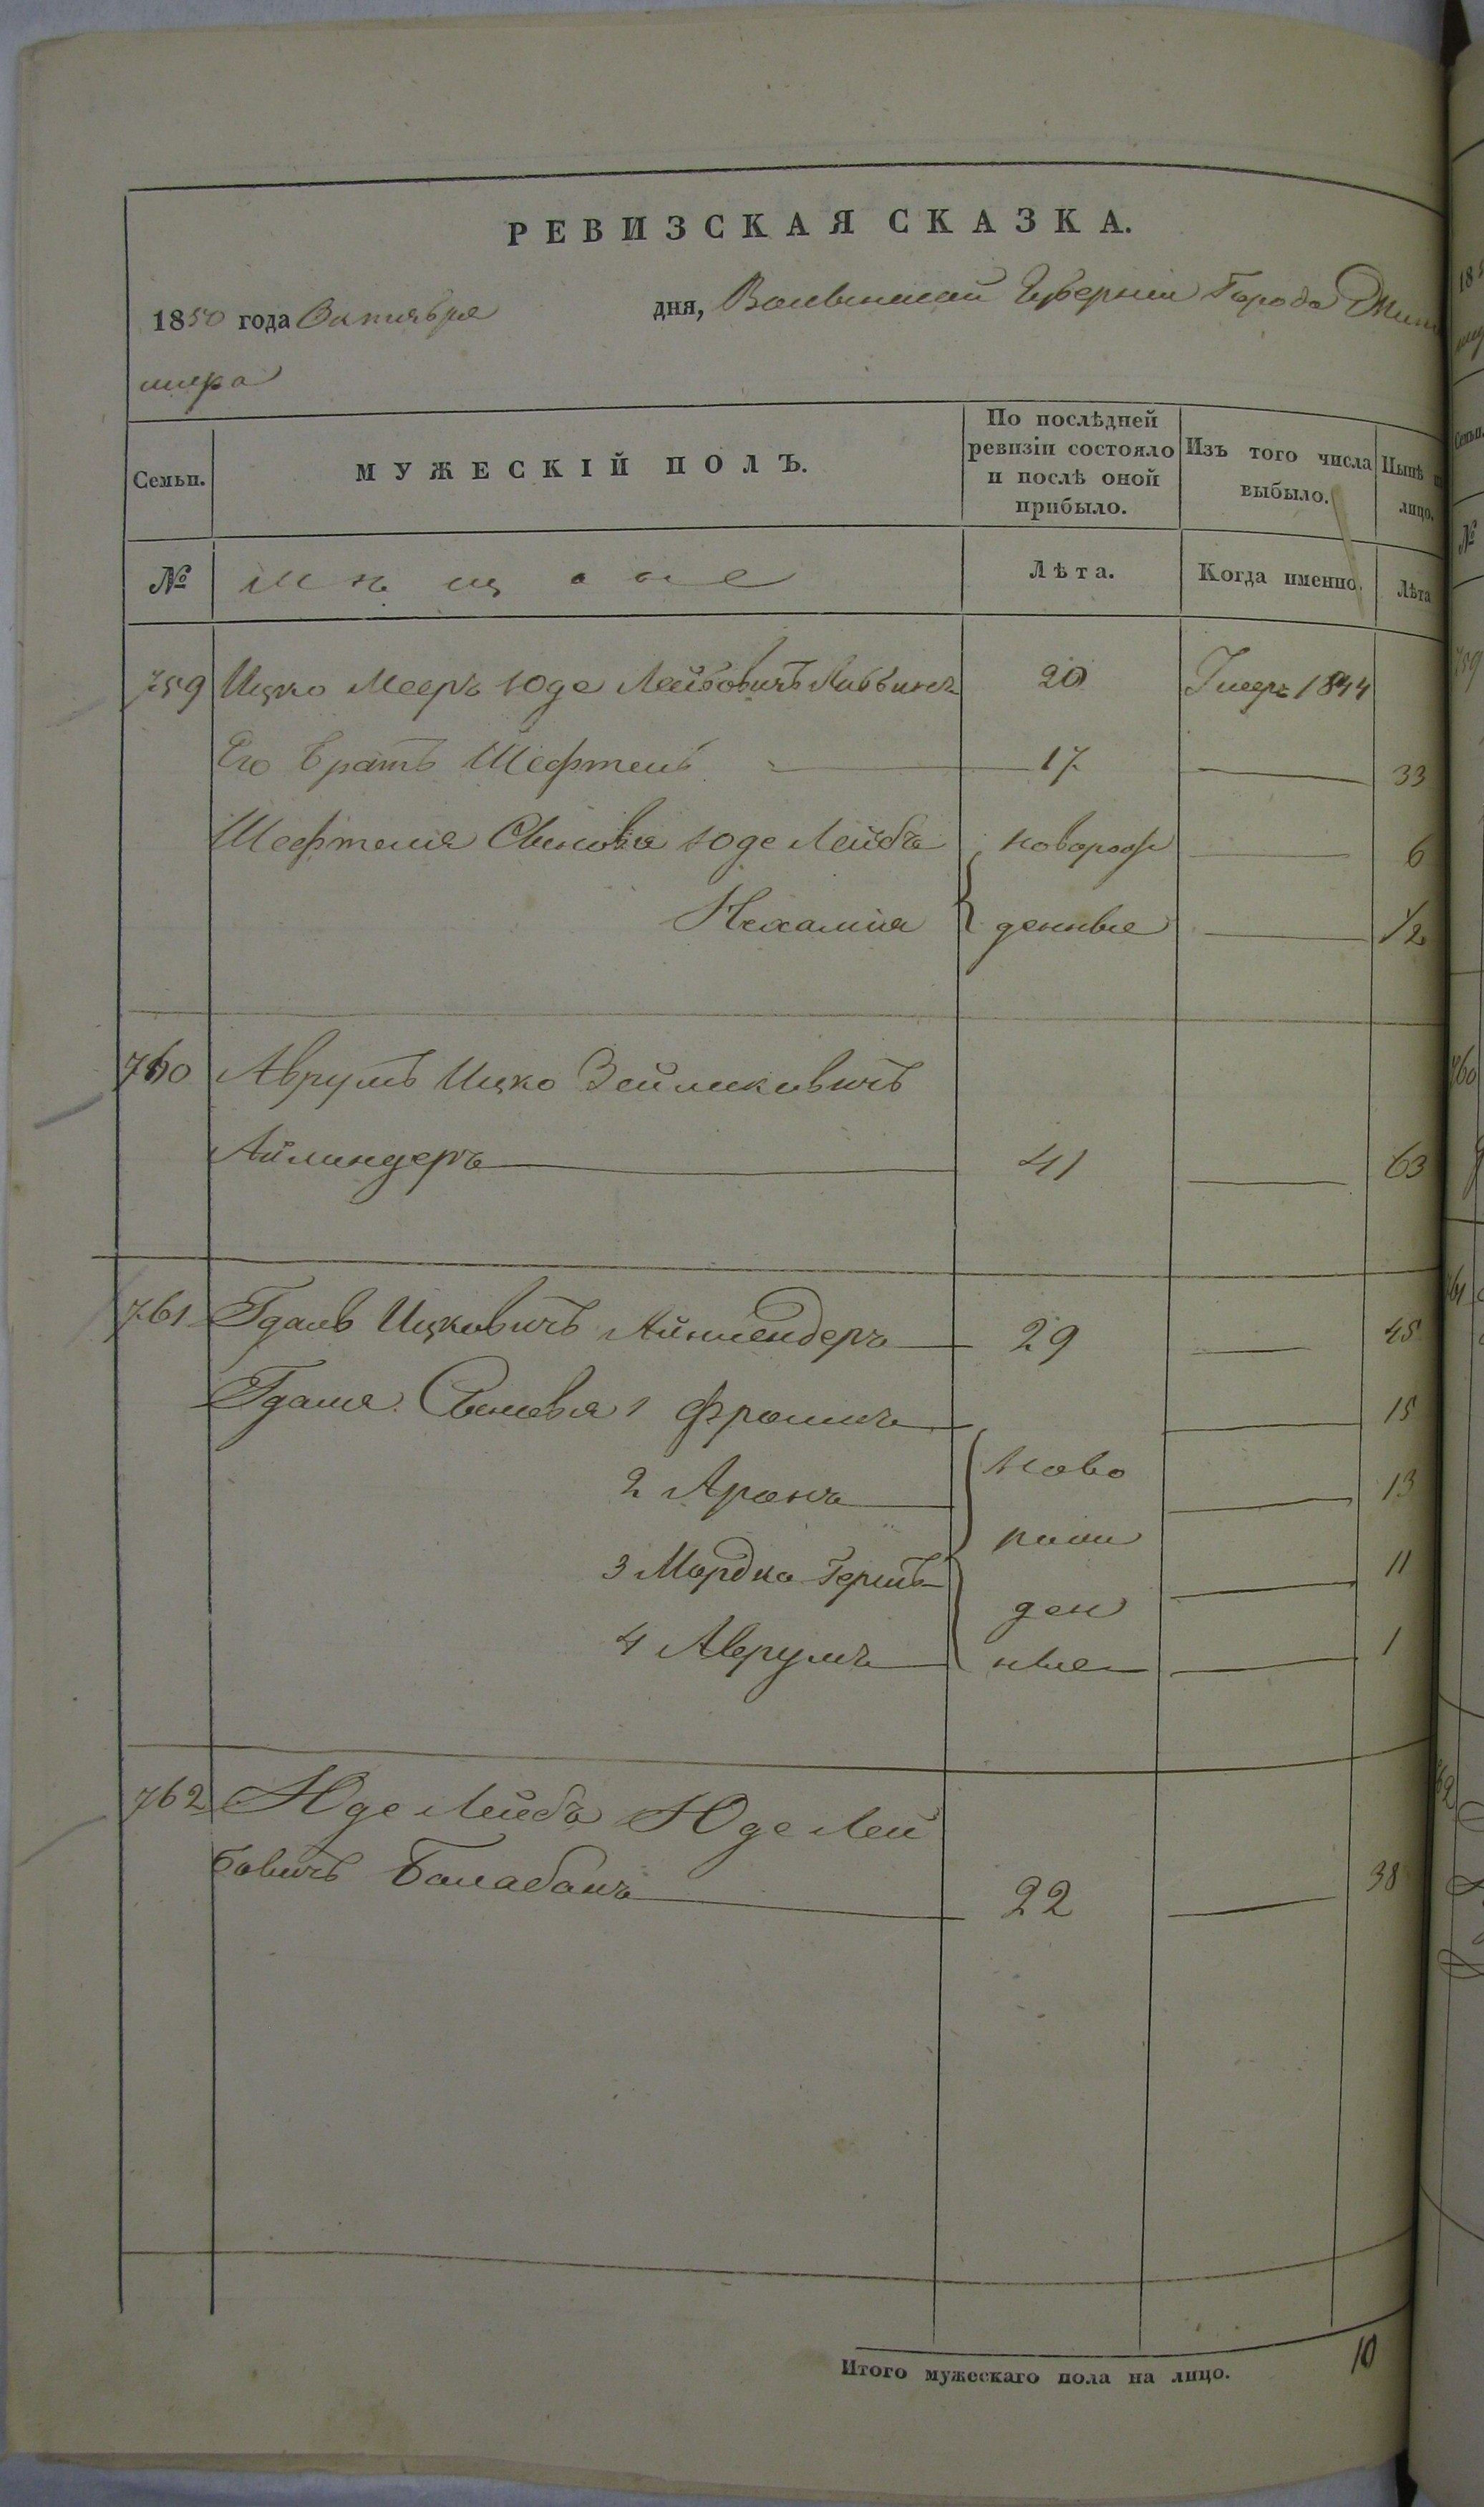 РЕВИЗСКАЯ СКАЗКА.
1850 года Октября дня, Волынской Губернии Города Жит
мира
Семьи. МУЖЕСКІЙ ПОЛЪ. По послѣдней ревизіи состояло и послѣ оной прибыло. Изъ того числа выбыло. Нынѣ лицо.
№ Мѣщане Лѣта. Когда именно. Лѣта
759 Ицко Мееръ Юде Лейбовичъ 20 Умеръ 1844
Его братъ Шефтель 17 33
Шефтеля Сыновья Юде Лейбъ новорож 6
Нехамия денные 1/2
760 Аврумъ Ицко Зейликовичъ
Айлиндеръ 41 63
761 Гдаль Ицковичъ Айлендеръ 29 45
Гдаля Сыновья 1 Фроимъ 15
2 Аронъ ново 13
3 Мордко Гершъ рож 11
4 Аврумъ ден 1
ные
762 Юде Лейбъ Юде Лей
бовичъ Балабанъ 22 38
Итого мужескаго пола на лицо. 10